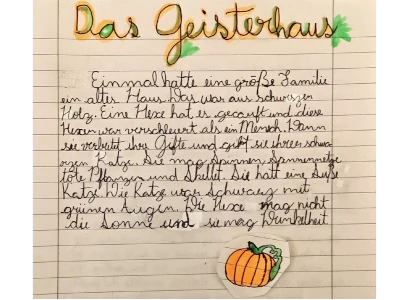 Das Geisterhaus
Einmal hatte eine große Familie
ein altes Haus. Das war aus schwarzen
Holz. Eine Hexe hat es gecauft und diese
Hexen war verschleuert als ein Mensch. Wenn
sie verbritet ihre Gifte und gibt sie ihrer schwa-
rzen Katze. Sie mag Spinnen Spinnennetze
tote Pflanzen und Skillet. Sie hatt eine süße
Katze. Die Katze war Schwarz mit
grünen Augin. Die Hexe mag nicht
die Sonne und sie mag Dunkelheit